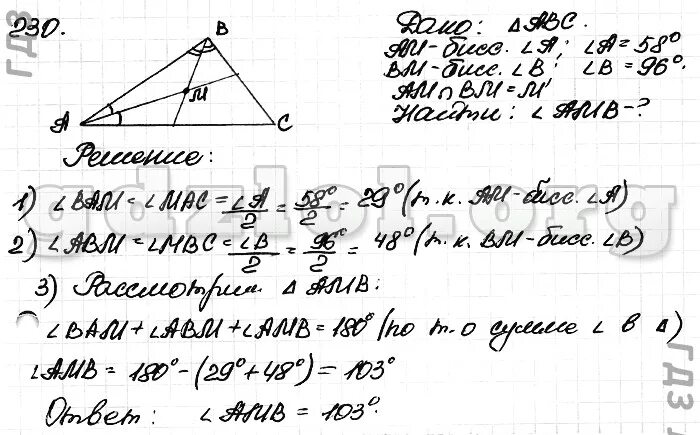 230.
Дано: △ABC.
AM-бисс. ∠A; ∠A=58°
BM-бисс. ∠B; ∠B=96°.
AM∩BM=M
Найти: ∠AMB-?
B
M
A
C
Решение:
1) ∠BAM=∠MAC=∠A/2=58°/2=29° (т.к. AM-бисс. ∠A)
2) ∠ABM=∠MBC=∠B/2=96°/2=48° (т.к. BM-бисс. ∠B)
3) Рассмотрим △AMB:
∠BAM+∠ABM+∠AMB=180° (по т.о сумме ∠ в △)
∠AMB=180°-(29°+48°)=103°
Ответ: ∠AMB=103°.
ГДЗ
gdzlol.org
ГДЗ